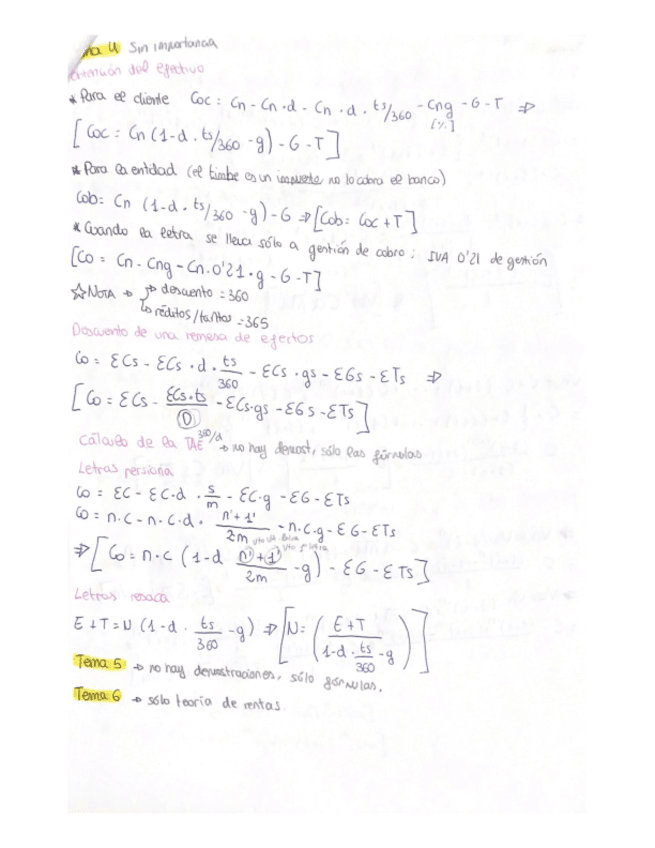 Tema 4 Sin importancia
Obtención del efectivo
* Para el cliente Coc = Cn - Cn · d - Cn · d · ts/360 - Cng - G - T ⇒
[%]
[Coc = Cn (1-d · ts/360 - g) - G - T]
* Para la entidad (el timbre es un impuesto, no lo cobra el banco)
Cob = Cn (1-d · ts/360 - g) - G ⇒ [Cob = Coc + T]
* Cuando la letra se lleva sólo a gestión de cobro: IVA 0'21 de gestión
[Co = Cn - Cng - Cn · 0'21 · g - G - T]
☆ NOTA → descuento = 360
↳ réditos/tantos = 365
Descuento de una remesa de efectos
Co = ΣCs - ΣCs · d · ts/360 - ΣCs · gs - ΣGs - ΣTs ⇒
[Co = ΣCs - ΣCs·ts/D - ΣCs·gs - ΣGs - ΣTs]
360/d
Cálculo de la TAE → no hay demost, sólo las fórmulas
Letras persiana
Co = ΣC - ΣC·d · s/m - ΣC·g - ΣG - ΣTs
Co = n·C - n·C·d · n'+1'/2m - n·C·g - ΣG - ΣTs
⇒ [Co = n·C (1-d n'+1'/2m - g) - ΣG - ΣTs]
Letras resaca
E+T = N (1-d · ts/360 - g) ⇒ [N = (E+T/1-d·ts/360-g)]
Tema 5 → no hay demostraciones, sólo fórmulas.
Tema 6 → sólo teoría de rentas.